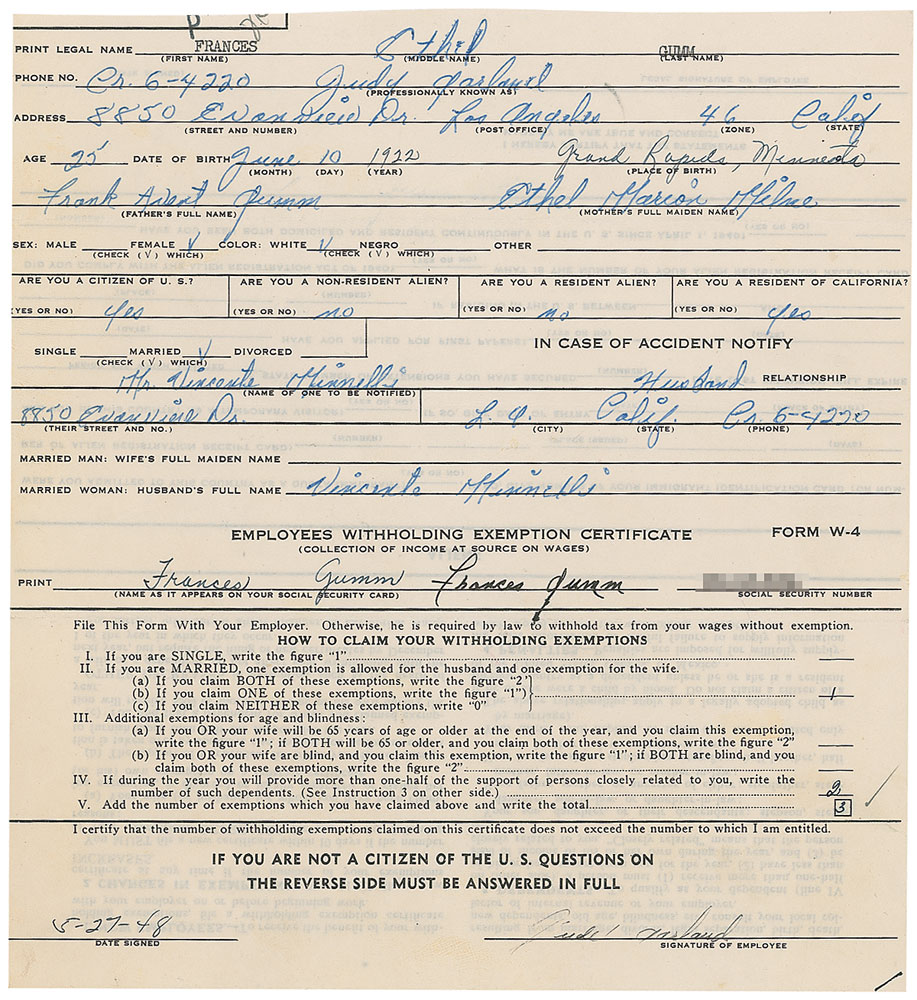 P
PRINT LEGAL NAME FRANCES Ethel GUMM
(FIRST NAME) (MIDDLE NAME) (LAST NAME)
PHONE NO. Cr. 6-4220 Judy Garland
(PROFESSIONALLY KNOWN AS)
ADDRESS 8850 Evanview Dr. Los Angeles 46 Calif
(STREET AND NUMBER) (POST OFFICE) (ZONE) (STATE)
AGE 25 DATE OF BIRTH June 10 1922 Grand Rapids, Minnesota
(MONTH) (DAY) (YEAR) (PLACE OF BIRTH)
Frank Avent Gumm Ethel Marion Milne
(FATHER'S FULL NAME) (MOTHER'S FULL MAIDEN NAME)
SEX: MALE FEMALE √ COLOR: WHITE √ NEGRO OTHER
(CHECK (√) WHICH) (CHECK (√) WHICH)
ARE YOU A CITIZEN OF U. S.? ARE YOU A NON-RESIDENT ALIEN? ARE YOU A RESIDENT ALIEN? ARE YOU A RESIDENT OF CALIFORNIA?
(YES OR NO) yes (YES OR NO) no (YES OR NO) no (YES OR NO) yes
IN CASE OF ACCIDENT NOTIFY
SINGLE MARRIED √ DIVORCED
(CHECK (√) WHICH)
Mr. Vincente Minnelli Husband RELATIONSHIP
(NAME OF ONE TO BE NOTIFIED)
8850 Evanview Dr. L. A. Calif. Cr. 6-4220
(THEIR STREET AND NO.) (CITY) (STATE) (PHONE)
MARRIED MAN: WIFE'S FULL MAIDEN NAME
MARRIED WOMAN: HUSBAND'S FULL NAME Vincente Minnelli
EMPLOYEES WITHHOLDING EXEMPTION CERTIFICATE FORM W-4
(COLLECTION OF INCOME AT SOURCE ON WAGES)
PRINT Frances Gumm Frances Gumm
(NAME AS IT APPEARS ON YOUR SOCIAL SECURITY CARD) SOCIAL SECURITY NUMBER
File This Form With Your Employer. Otherwise, he is required by law to withhold tax from your wages without exemption.
HOW TO CLAIM YOUR WITHHOLDING EXEMPTIONS
I. If you are SINGLE, write the figure "1"
II. If you are MARRIED, one exemption is allowed for the husband and one exemption for the wife.
(a) If you claim BOTH of these exemptions, write the figure "2"
(b) If you claim ONE of these exemptions, write the figure "1") 1
(c) If you claim NEITHER of these exemptions, write "0"
III. Additional exemptions for age and blindness:
(a) If you OR your wife will be 65 years of age or older at the end of the year, and you claim this exemption,
write the figure "1"; if BOTH will be 65 or older, and you claim both of these exemptions, write the figure "2"
(b) If you OR your wife are blind, and you claim this exemption, write the figure "1"; if BOTH are blind, and you
claim both of these exemptions, write the figure "2"
IV. If during the year you will provide more than one-half of the support of persons closely related to you, write the
number of such dependents. (See Instruction 3 on other side.) 2
V. Add the number of exemptions which you have claimed above and write the total 3
I certify that the number of withholding exemptions claimed on this certificate does not exceed the number to which I am entitled.
IF YOU ARE NOT A CITIZEN OF THE U. S. QUESTIONS ON
THE REVERSE SIDE MUST BE ANSWERED IN FULL
5-27-48 Judy Garland
DATE SIGNED SIGNATURE OF EMPLOYEE